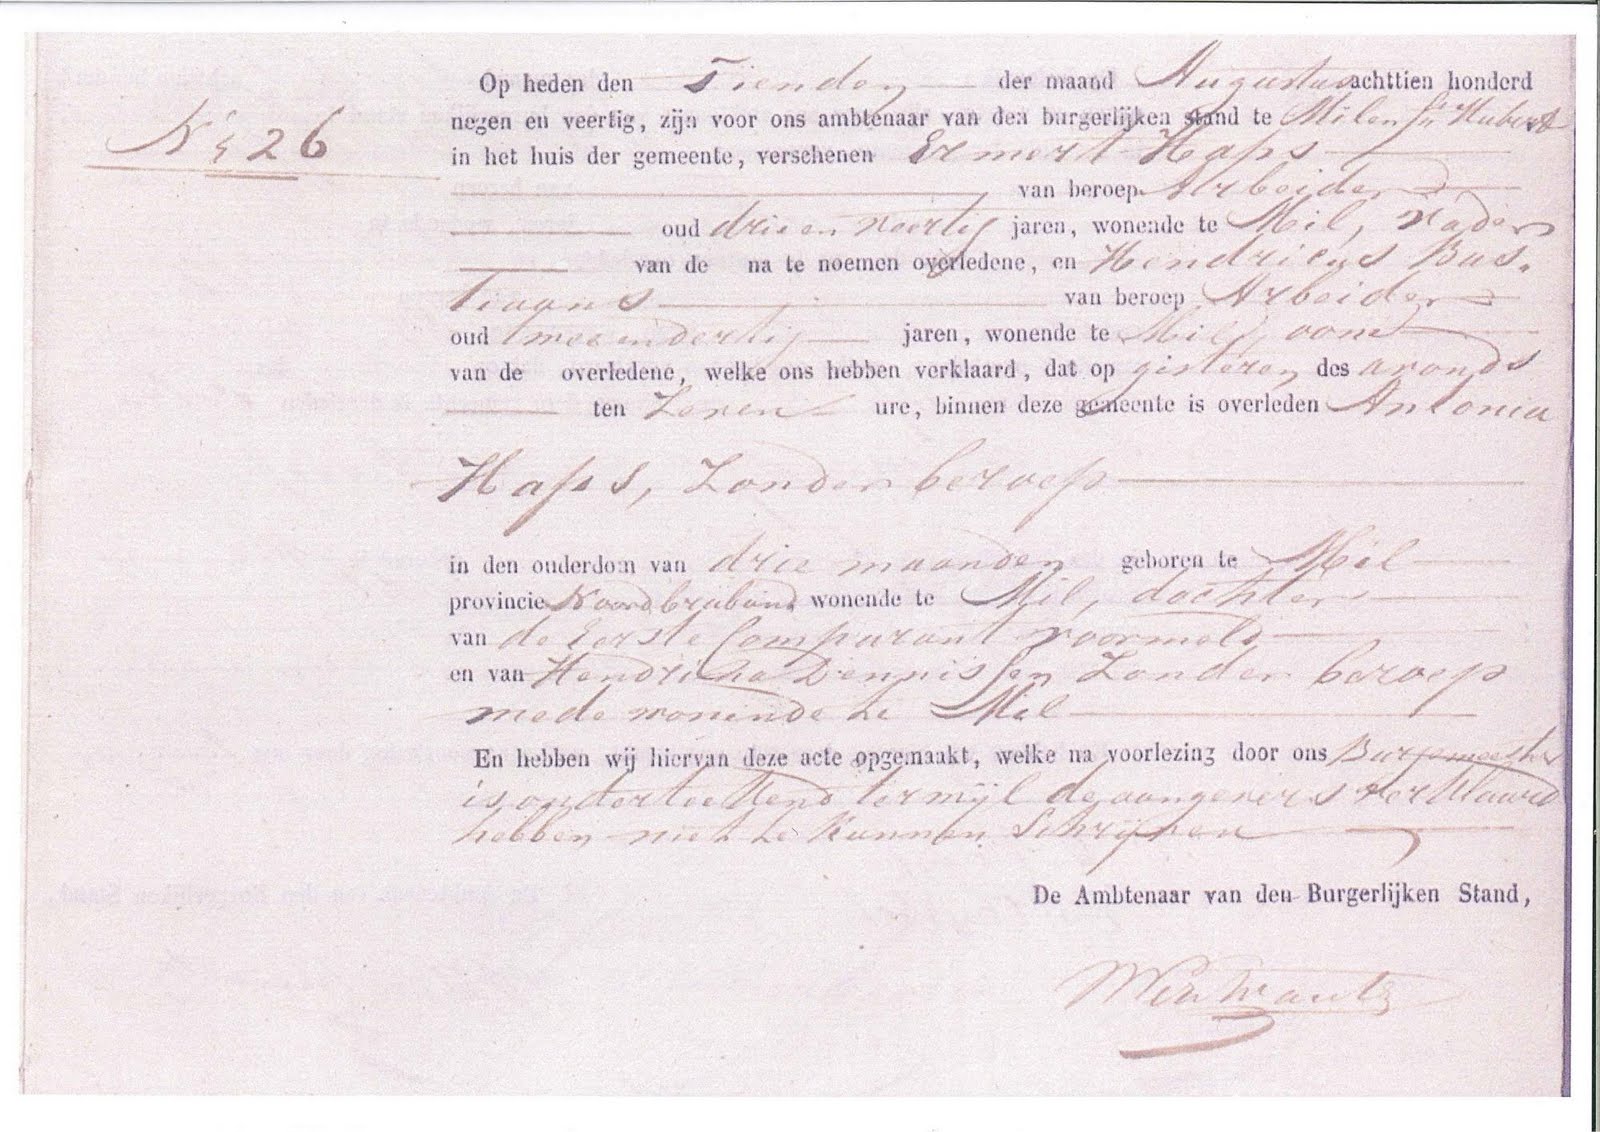 Op heden den Tienden der maand Augustus achttien honderd
No 26
negen en veertig, zijn voor ons ambtenaar van den burgerlijken stand te Mil en St Hubert
in het huis der gemeente, verschenen Ermert Haps
van beroep Arbeider
oud drie en veertig jaren, wonende te Mil, vader
van de na te noemen overledene, en Hendricus Bas-
tiaans van beroep Arbeider
oud twee en dertig jaren, wonende te Mil, oom
van de overledene, welke ons hebben verklaard, dat op gisteren des avonds
ten Zeven ure, binnen deze gemeente is overleden Antonia
Haps, Zonder beroep
in den ouderdom van drie maanden geboren te Mil
provincie Noordbraband wonende te Mil, dochter
van de Eerste Comparant voormeld
en van Hendrika Dennissen Zonder beroep
mede wonende te Mil
En hebben wij hiervan deze acte opgemaakt, welke na voorlezing door ons Burgemeester
is onderteekend termijl de aangevers verklaard
hebben niet te kunnen Schrijven
De Ambtenaar van den Burgerlijken Stand,